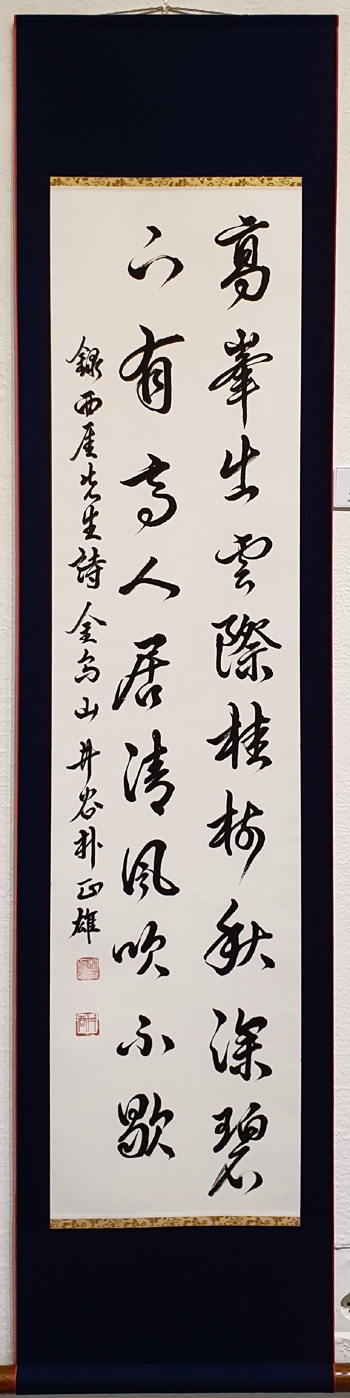 高峯生雲際桂樹秋深碧
下有高人居清風吹不歇
錄西厓先生詩 金烏山 井谷朴正雄